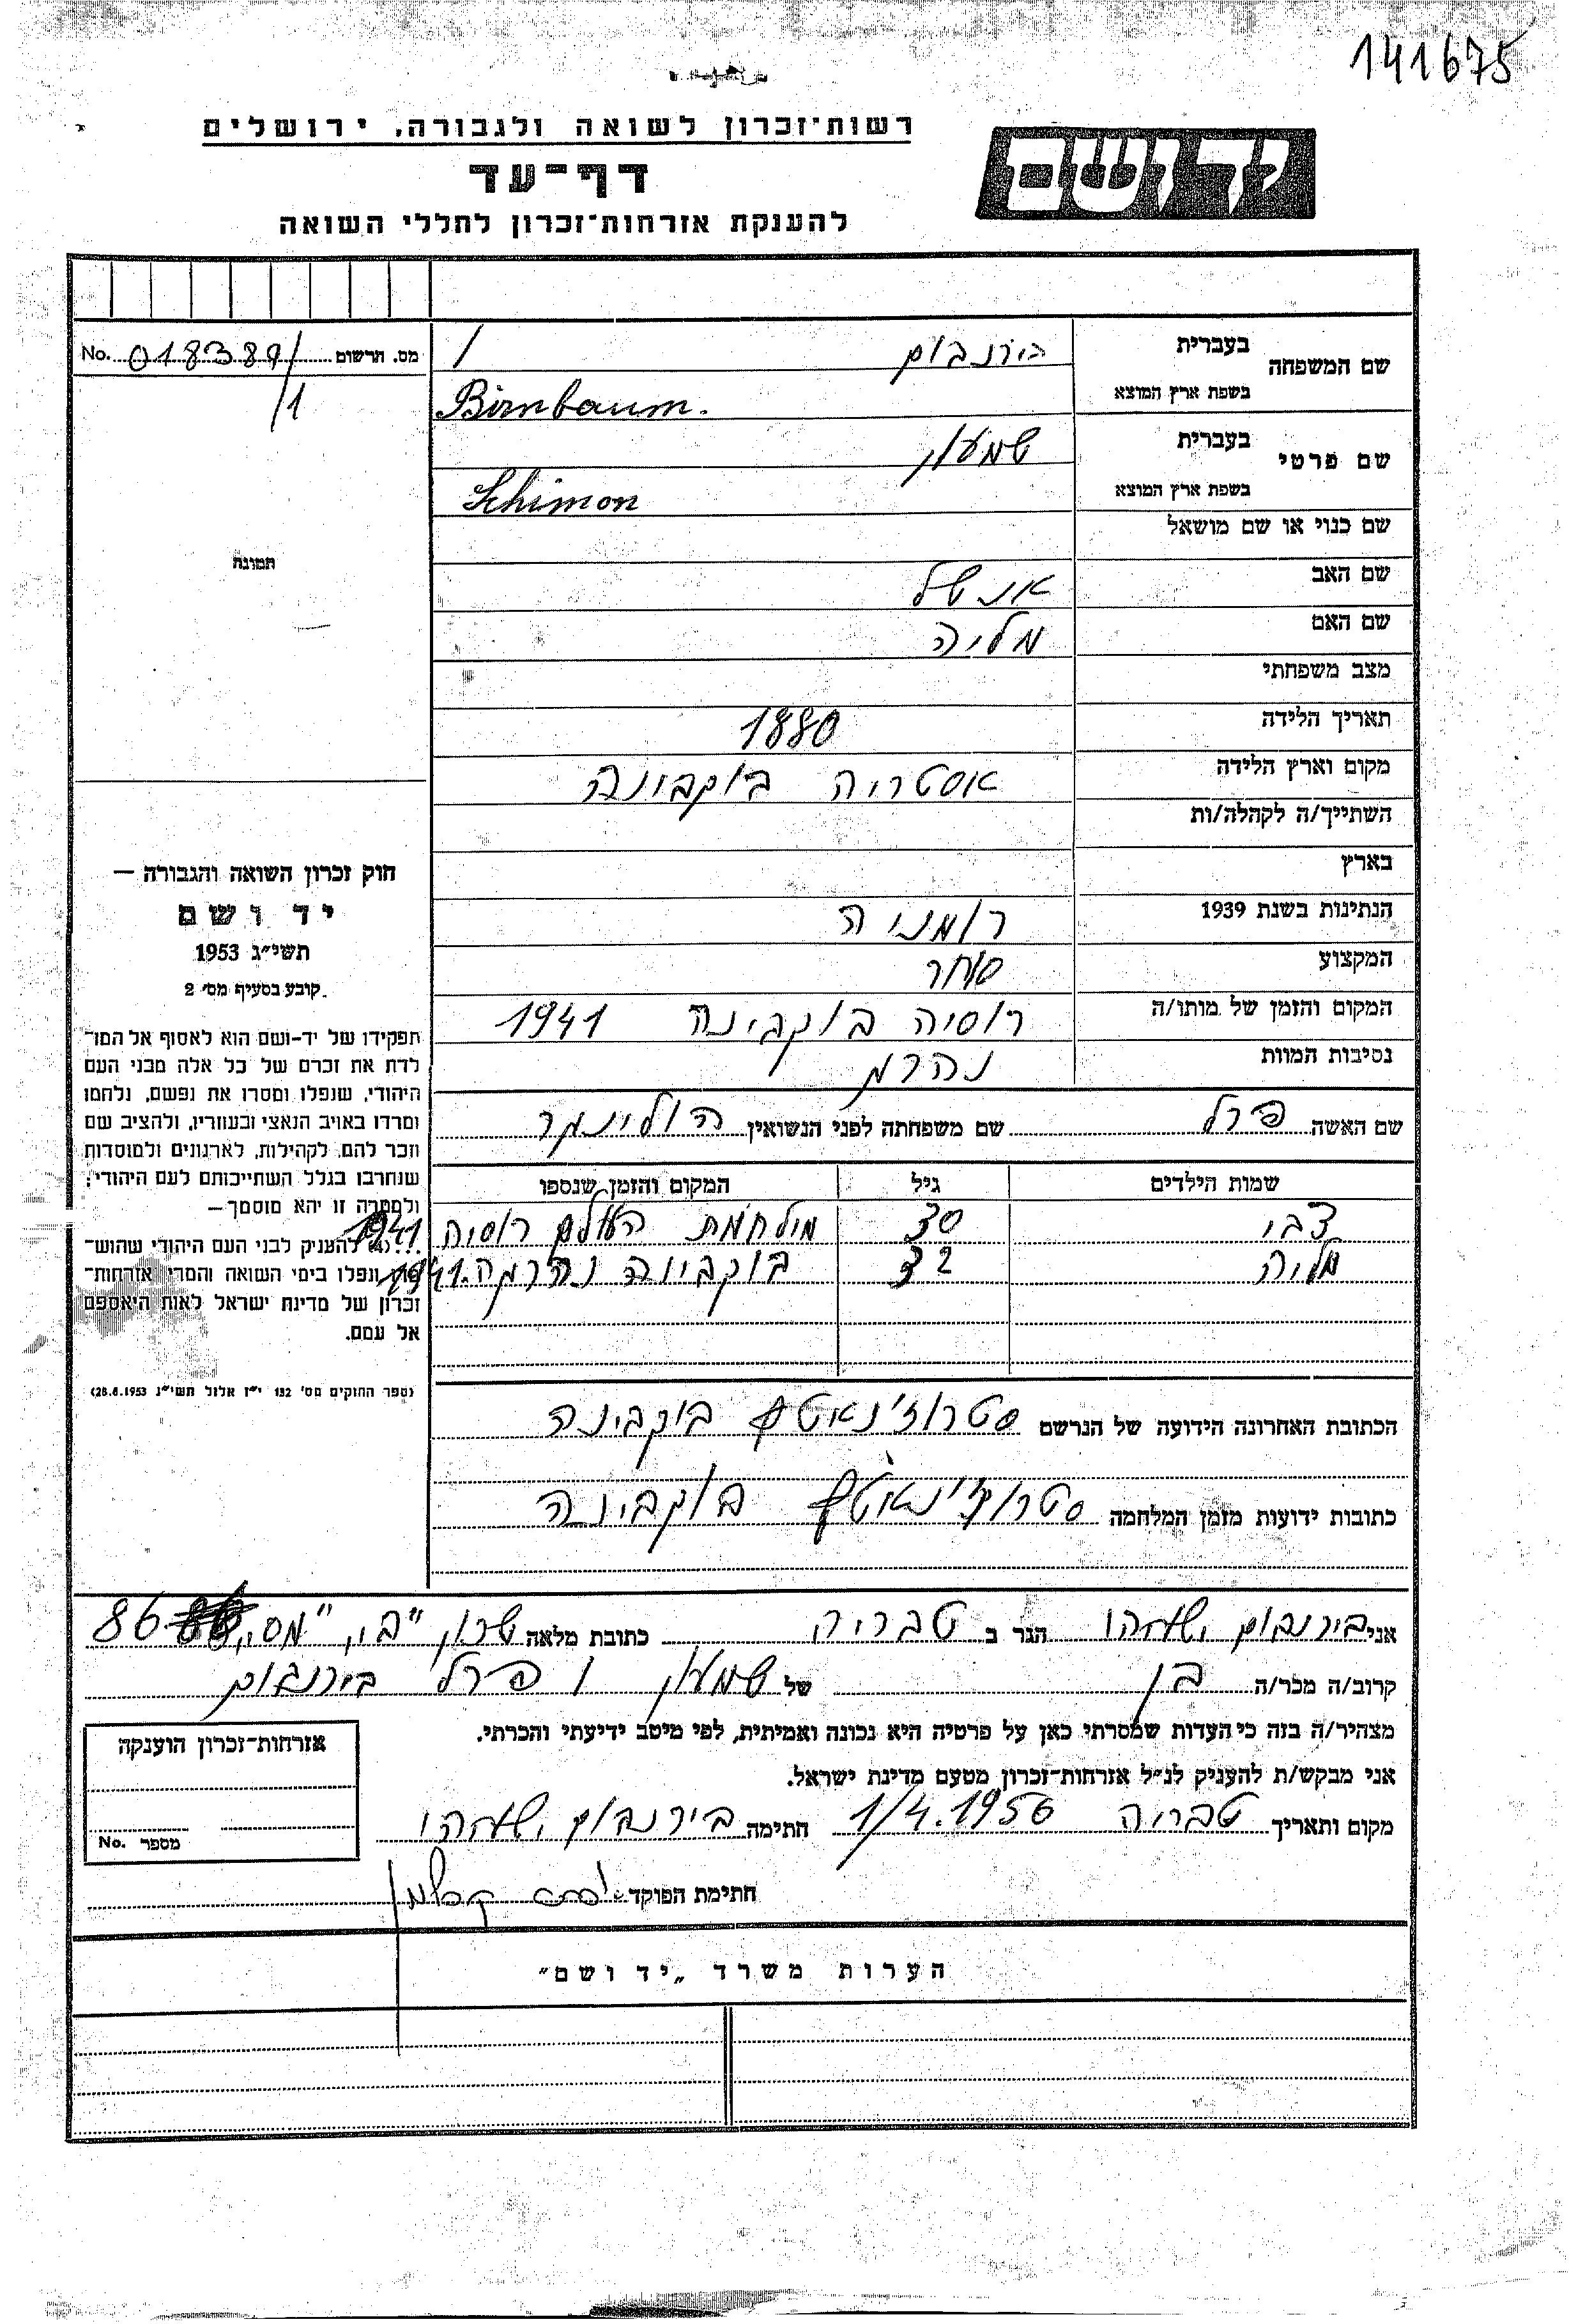 141675
רשות־זכרון לשואה ולגבורה, ירושלים
יד ושם
דף־עד
להענקת אזרחות־זכרון לחללי השואה
מס. תרשום No. 018389/
/1
תמונה
שם המשפחה בעברית בירנבום /
בשפת ארץ המוצא Birnbaum.
שם פרטי בעברית שמעון
בשפת ארץ המוצא Schimon
שם כנוי או שם מושאל
שם האב אנשל
שם האם מליה
מצב משפחתי
תאריך הלידה 1880
מקום וארץ הלידה אסטריה בוקבינה
השתייך/ה לקהלה/ות
בארץ
הנתינות בשנת 1939 רומניה
המקצוע סוחר
המקום והזמן של מותו/ה רוסיה בוקבינה 1941
נסיבות המוות נהרג
שם האשה פרל שם משפחתה לפני הנשואין
שמות הילדים גיל המקום והזמן שנספו
צבי 30 מילחמת העולם רוסיה 1941
מליה 32 בוקבינה נהרגה. 1941
הכתובת האחרונה הידועה של הנרשם סטרוז'נאטץ בוקבינה
כתובות ידועות מזמן המלחמה סטרוז'נאטץ בוקבינה
חוק זכרון השואה והגבורה —
יד ושם
תשי״ג 1953
קובע בסעיף מס׳ 2
תפקידו של יד-ושם הוא לאסוף אל המו־
לדת את זכרם של כל אלה מבני העם
היהודי, שנפלו ומסרו את נפשם, נלחמו
ומרדו באויב הנאצי ובעוזריו, ולהציב שם
וזכר להם, לקהילות, לארגונים ולמוסדות
שנחרבו בגלל השתייכותם לעם היהודי;
ולמטרה זו יהא מוסמך—
להעניק לבני העם היהודי שהוש־
מדו ונפלו בימי השואה והמרי אזרחות־
זכרון של מדינת ישראל לאות היאספם
אל עמם.
(ספר החוקים מס׳ 132 י״ז אלול תשי״ג 28.8.1953)
אני בירנבום ישעיהו הגר ב טבריה כתובת מלאה שכון "בי," מס. 86
קרוב/ה מכר/ה בן של שמעון ו פרל בירנבום
מצהיר/ה בזה כי העדות שמסרתי כאן על פרטיה היא נכונה ואמיתית, לפי מיטב ידיעתי והכרתי.
אני מבקש/ת להעניק לנ״ל אזרחות־זכרון מטעם מדינת ישראל.
מקום ותאריך טבריה 1/4.1956 חתימה בירנבום ישעיהו
חתימת הפוקד
אזרחות־זכרון הוענקה
מספר No.
הערות משרד „יד ושם״